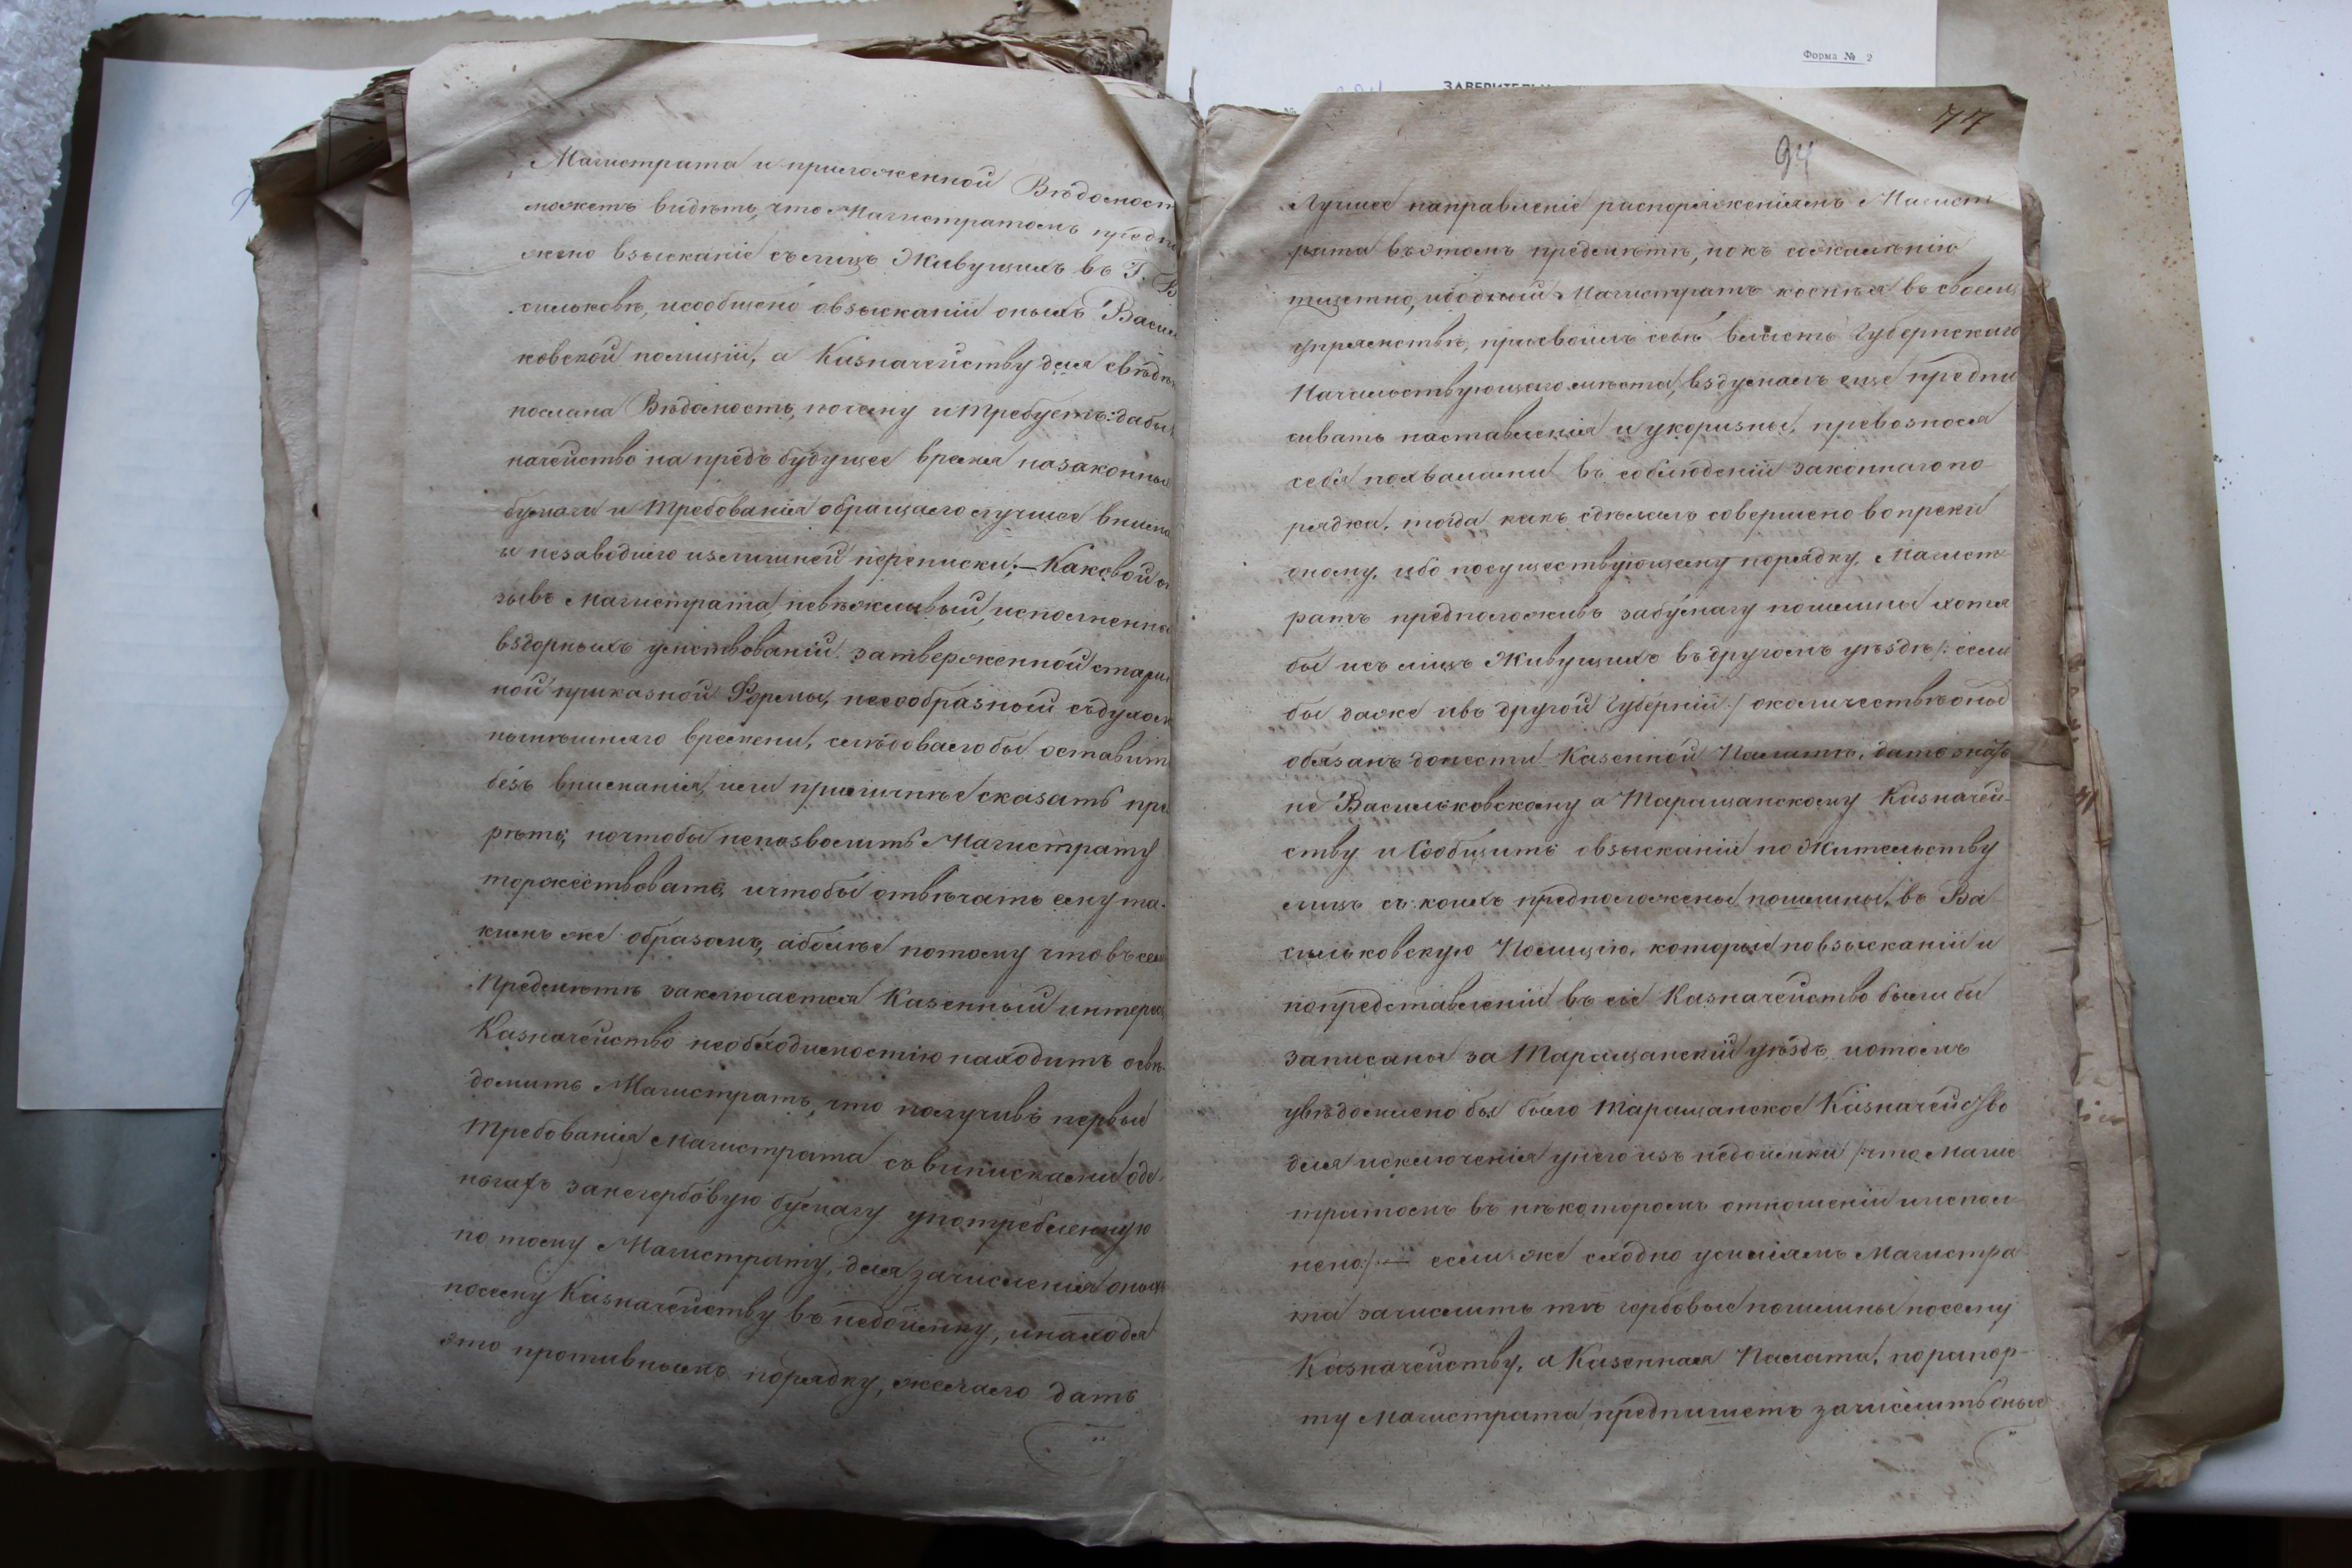 Форма № 2
77
94
Магистрата и приложенной Вѣдомост
можетъ видѣть, что Магистратомъ предпо
жено взысканіе съ лицъ Живущихъ въ Г. В
сильковѣ, и сообщено о взысканіи оныхъ Василь
ковской полиціи, а Казначейству для свѣдѣн
послана Вѣдомость, почему и требуетъ: дабы
начейство на предъ будущее время на законныя
бумаги и требованія обращало лучшее вниман
и незаводило излишней переписки; — Каковой о
зывъ Магистрата невѣжливый, исполненны
вздорныхъ умствованій затверженной старин
ной приказной Формы, несообразный съ духом
нынѣшняго времени, слѣдовало бы оставить
безъ вниманія, или приличнѣе сказать пре
рѣть; но чтобы непозволить Магистрату
торжествовать, и чтобы отвѣчать ему та-
кимъ же образомъ, а болѣе потому что въ сем
Предметѣ заключается Казенный интерес
Казначейство необходимостію находитъ освѣ-
домить Магистратъ, что получивъ первыя
требованія Магистрата съ выписками о де-
ньгахъ за негербовую бумагу употребленную
по тому Магистрату, для зачисленія оныхъ
по сему Казначейству въ недоимку, и находя
это противнымъ порядку, желало дать
Лучшее направленіе распоряженіямъ Магист
рата въ этомъ предметѣ, но къ сожаленію
тщетно, ибо оный Магистратъ коснѣя въ своемъ
упрямствѣ, присвоилъ себѣ власть Губернскаго
Начальствующаго мѣста, вздумалъ еще предпи
сывать наставленія и укоризны, превознося
себя похвалами въ соблюденіи законнаго по-
рядка, тогда какъ сдѣлалъ совершено вопреки
оному, ибо по существующему порядку, Магист
ратъ предположивъ за бумагу пошлины хотя
бы и съ лицъ Живущихъ въ другомъ уѣздѣ /: если
бы даже и въ другой Губерніи :/ о количествѣ оныхъ
обязанъ донести Казенной Палатѣ, дать знать
не Васильковскому а Таращанскому Казначей-
ству и Сообщить о взысканіи по Жительству
лицъ съ коихъ предположены пошлины, въ Ва
сильковскую Полицію, которыя по взысканіи и
по представленіи въ сіе Казначейство были бы
записаны за Таращанскій уѣздъ, и о томъ
увѣдомлено бы было Таращанское Казначейство
для исключенія у него изъ недоимки /: что Магис
тратомъ въ нѣкоторомъ отношеніи и испол
нено :/ — если же сходно усиліямъ Магистра
та зачислить тѣ гербовыя пошлины по сему
Казначейству, а Казенная Палата, по рапор-
ту Магистрата предпишетъ зачислить оныя